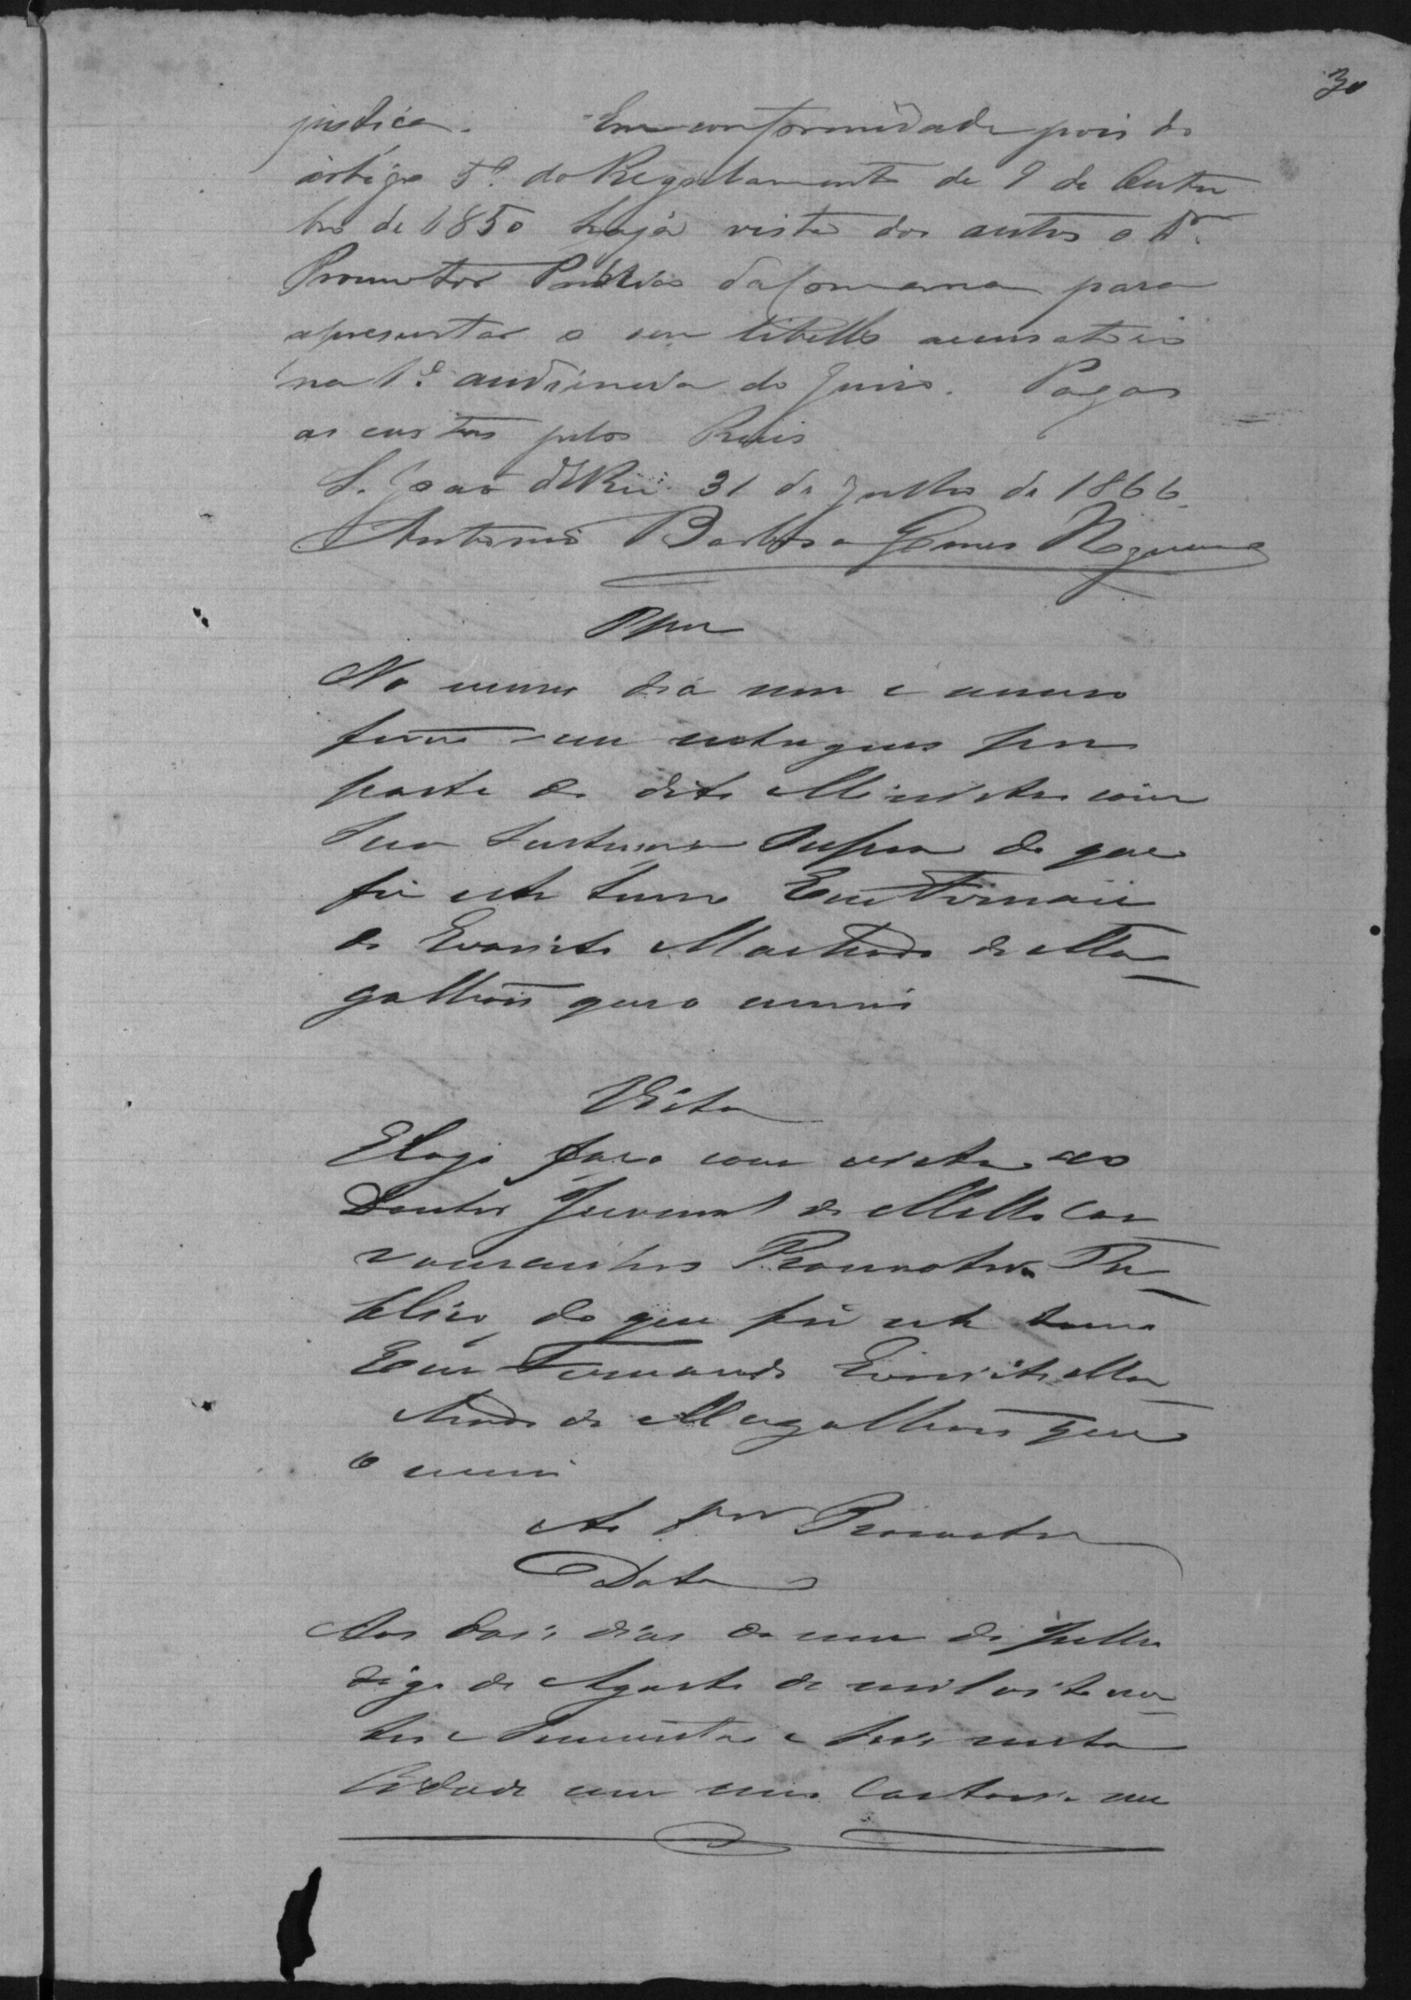 30
justiça. Em conformidade pois do
artigo 5º. do Regulamento de 9 de Outu
bro de 1850 haja vista dos autos o Dr.
Promotor Publico da Comarca para
apresentar o seu libello accusatorio
na 1ª. audiencia do Juiso. Pagas
as custas pelos Reis
S. João d'El Rei 31 de Julho de 1866.
Antonio Barbosa Gomes Nogueira
No mesmo dia mes e anno
forão me entregues por
parte do dito Ministro com
sua sentença supra de que
fiz este termo Eu
de Evaristo Machado de Ma
galhães que o escrevi
Vista
E logo faço com vista ao
Doutor Juvenal de Mello Car
ramanhos Promotor Pu
blico, do que fiz este termo
Eu Fernando Evaristo Ma
chado de Magalhães que
o escrevi
Ao Promotor
Data
Aos dois dias do mes de Julho
digo de Agosto de mil oito cen
tos e sessenta e seis nesta
Cidade em meu Cartorio me